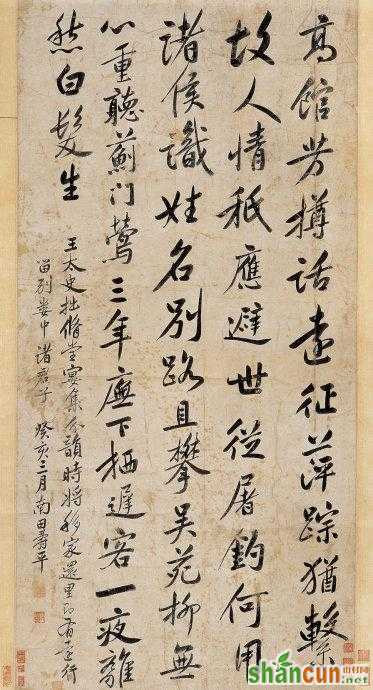 高館芳樽話遠征萍踪猶繫
故人情秖應避世從屠釣何用
諸侯識姓名別路且攀吳苑柳無
心重聽薊门鶯三年廡下栖遲客一夜離
愁白髮生
王太史拙脩堂宴集分韻時將移家還里有遠行
留別婁中諸君子 癸亥三月南田壽平
shancun
.net